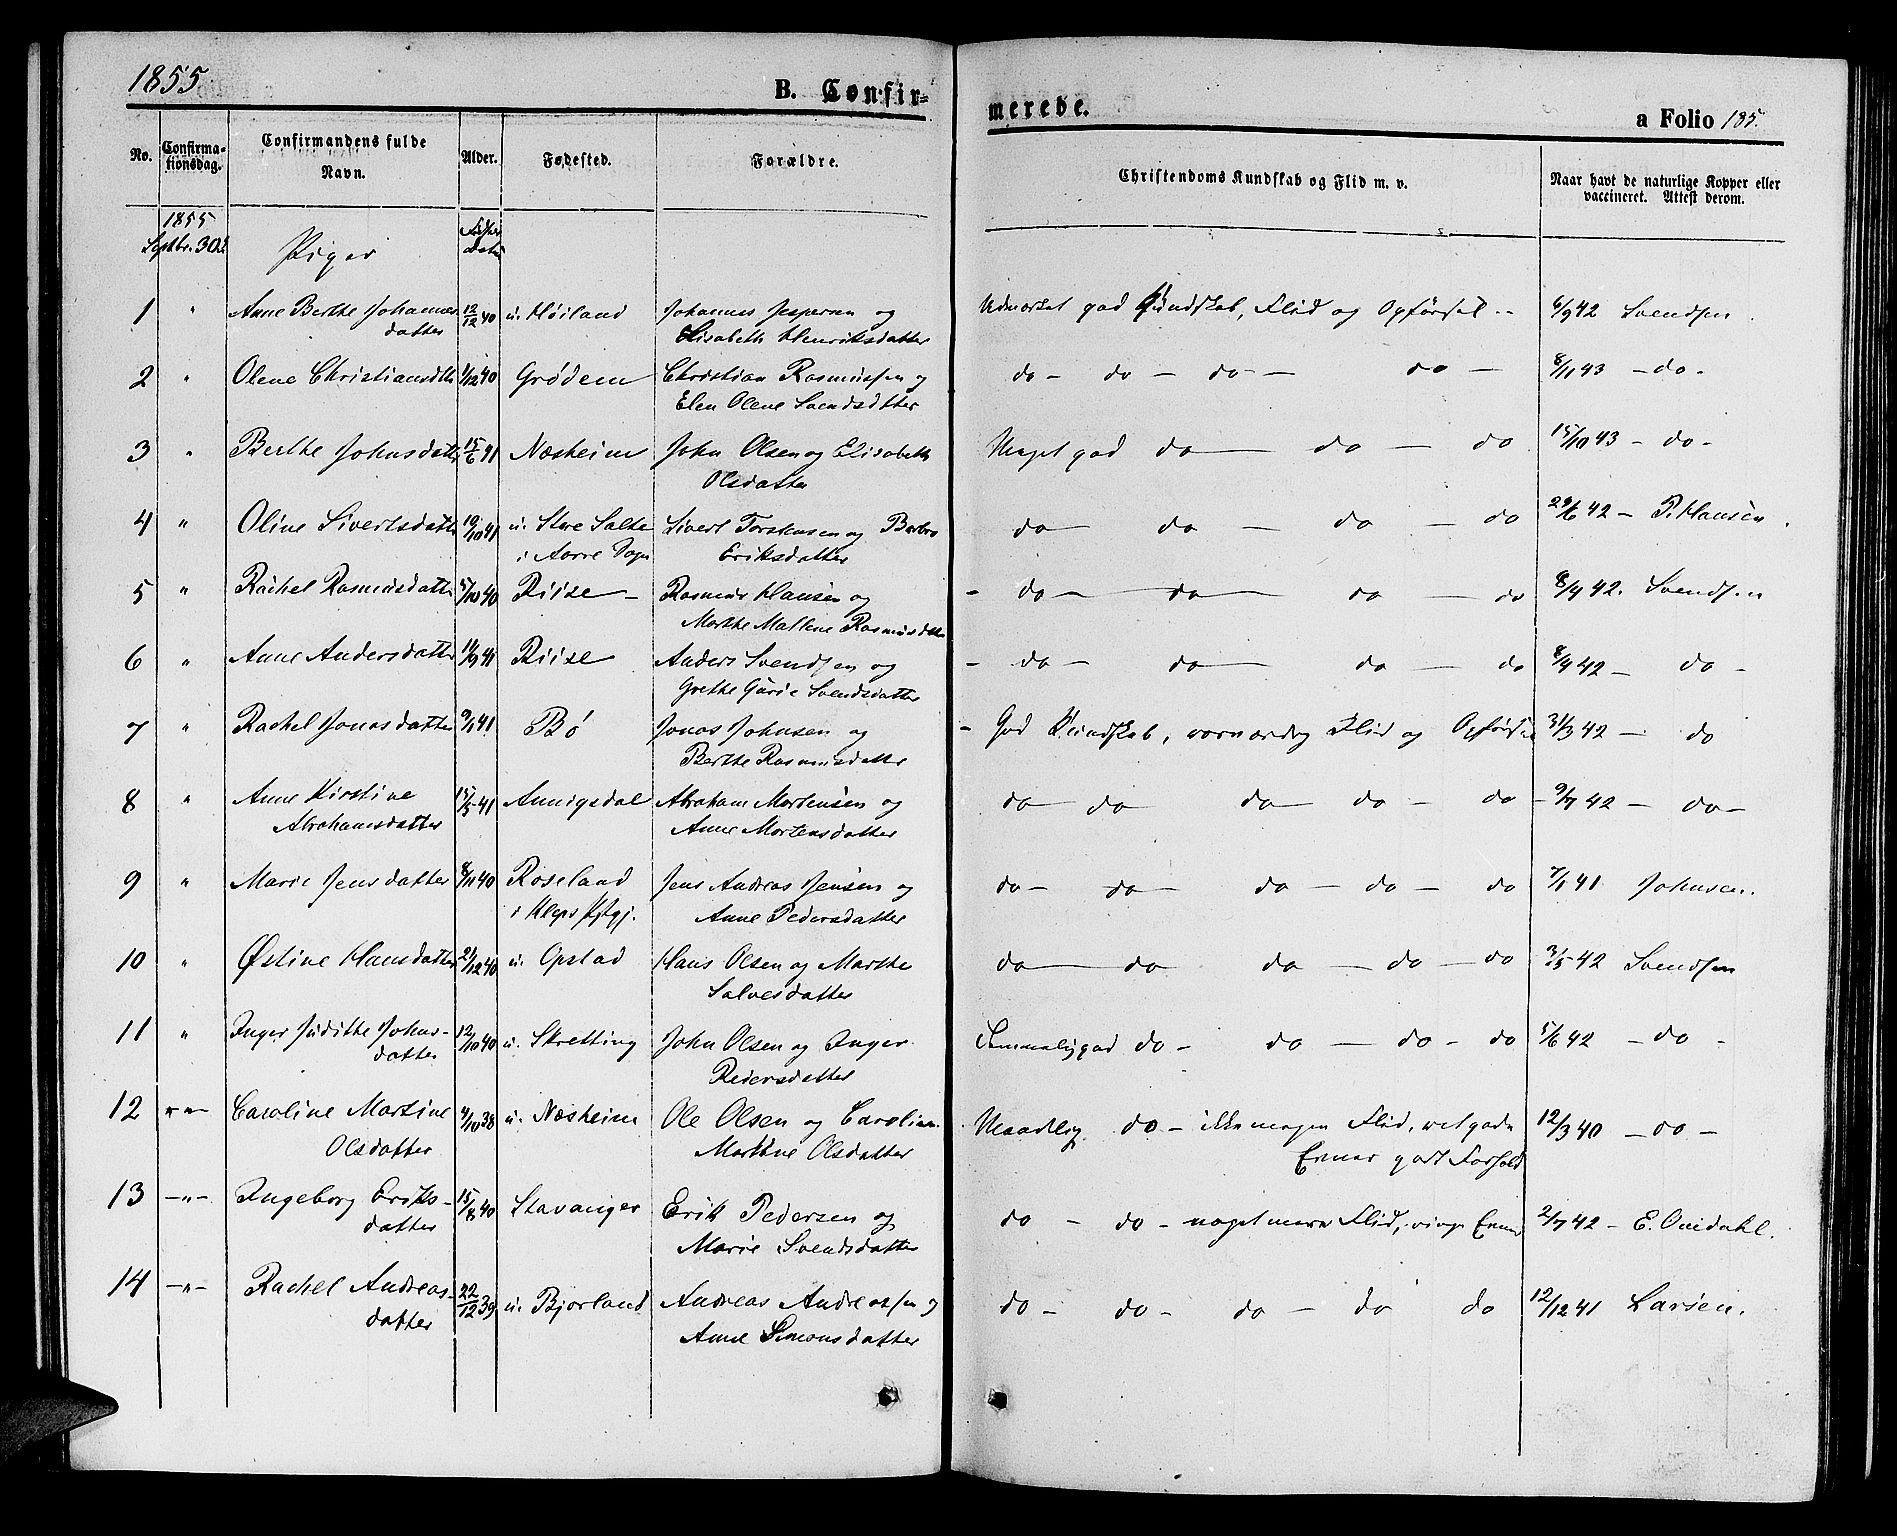 1855
B. Confir=
merede.
a Folio 185.
No.
Confirma=
tionsdag.
Confirmandens fulde
Navn.
Alder.
Fødested.
Forældre.
Christendoms Kundskab og Flid m. v.
Naar havt de naturlige Kopper eller
vaccineret. Attest derom.
1855
Septbr. 30d.
Piger
1 " Anne Berthe Johannes 12/12 40 u. Høiland Johannes Jespersen og Udmærket god Kundskab, Flid og Opførsel 6/9 42 Svendsen
datter Elisabeth Henriksdatter
2 " Olene Christiansdtr 1/12 40 Grødem Christian Rasmussen og do - do - do - do - 8/11 43 - do -
Elen Olene Svendsdtter
3 " Berthe Johnsdatter 15/6 41 Næsheim John Olsen og Elisabeth Meget god do - do - do 15/10 43 - do -
Olsdatter
4 " Oline Sivertsdatter 19/10 41 u. Store Salte Sivert Torstensen og Berbro do - do - do - do 29/6 42 - P. Hansen
i Aorre Sogn Eriksdatter
5 " Rachel Rasmusdatter 5/10 40 Riise - Rasmus Hansen og - do - do - do - do 8/9 42. Svendsen
Marthe Mallene Rasmusdtr
6 " Anne Andersdatter 11/9 41 Riise Anders Svendsen og - do - do - do - do 8/9 42 - do -
Grethe Gurie Svendsdatter
7 " Rachel Jonasdatter 9/1 41 Bø Jonas Johnsen og - God Kundskab, Flid og Opførsel 31/3 42 - do
Berthe Rasmusdatter
8 " Anne Kirstine 15/5 41 Annigsdal Abraham Mortensen og do - do - do - do - do - 9/7 42 - do -
Abrahamsdatter Anne Mortensdatter
9 " Marie Jensdatter 8/11 40 Roseland Jens Andreas Jensen og do - do - do - do - do 7/1 41 Johnsen.
i Kleps Anne Pedersdatter
10 " Østine Hansdatter 21/12 40 u. Opstad Hans Olsen og Marthe do - do - do - do - do 3/5 42 Svendsen
Salvesdatter
11 " Inger Judithe Johns- 12/10 40 u. Skretting John Olsen og Inger Temmelig god do - do - do - do 5/6 42 - do -
datter Pedersdatter
12 -"- Caroline Martine 4/10 38 u. Næsheim Ole Olsen og Caroline Maadelig do - ikke megen Flid, 12/3 40 - do -
Olsdatter Marthine Olsdatter Evner godt Forhold
13 -"- Ingeborg Eriks- 15/8 40 Stavanger Erik Pedersen og do - do - noget mere Flid, ringe Evner 2/7 42 - E. Ouedahl.
datter Marie Svendsdatter
14 -"- Rachel Andreas- 22/12 39 u. Bjorland Andreas Andreassen og do - do - do - do do 12/12 41 Larsen.
datter Anne Simonsdatter